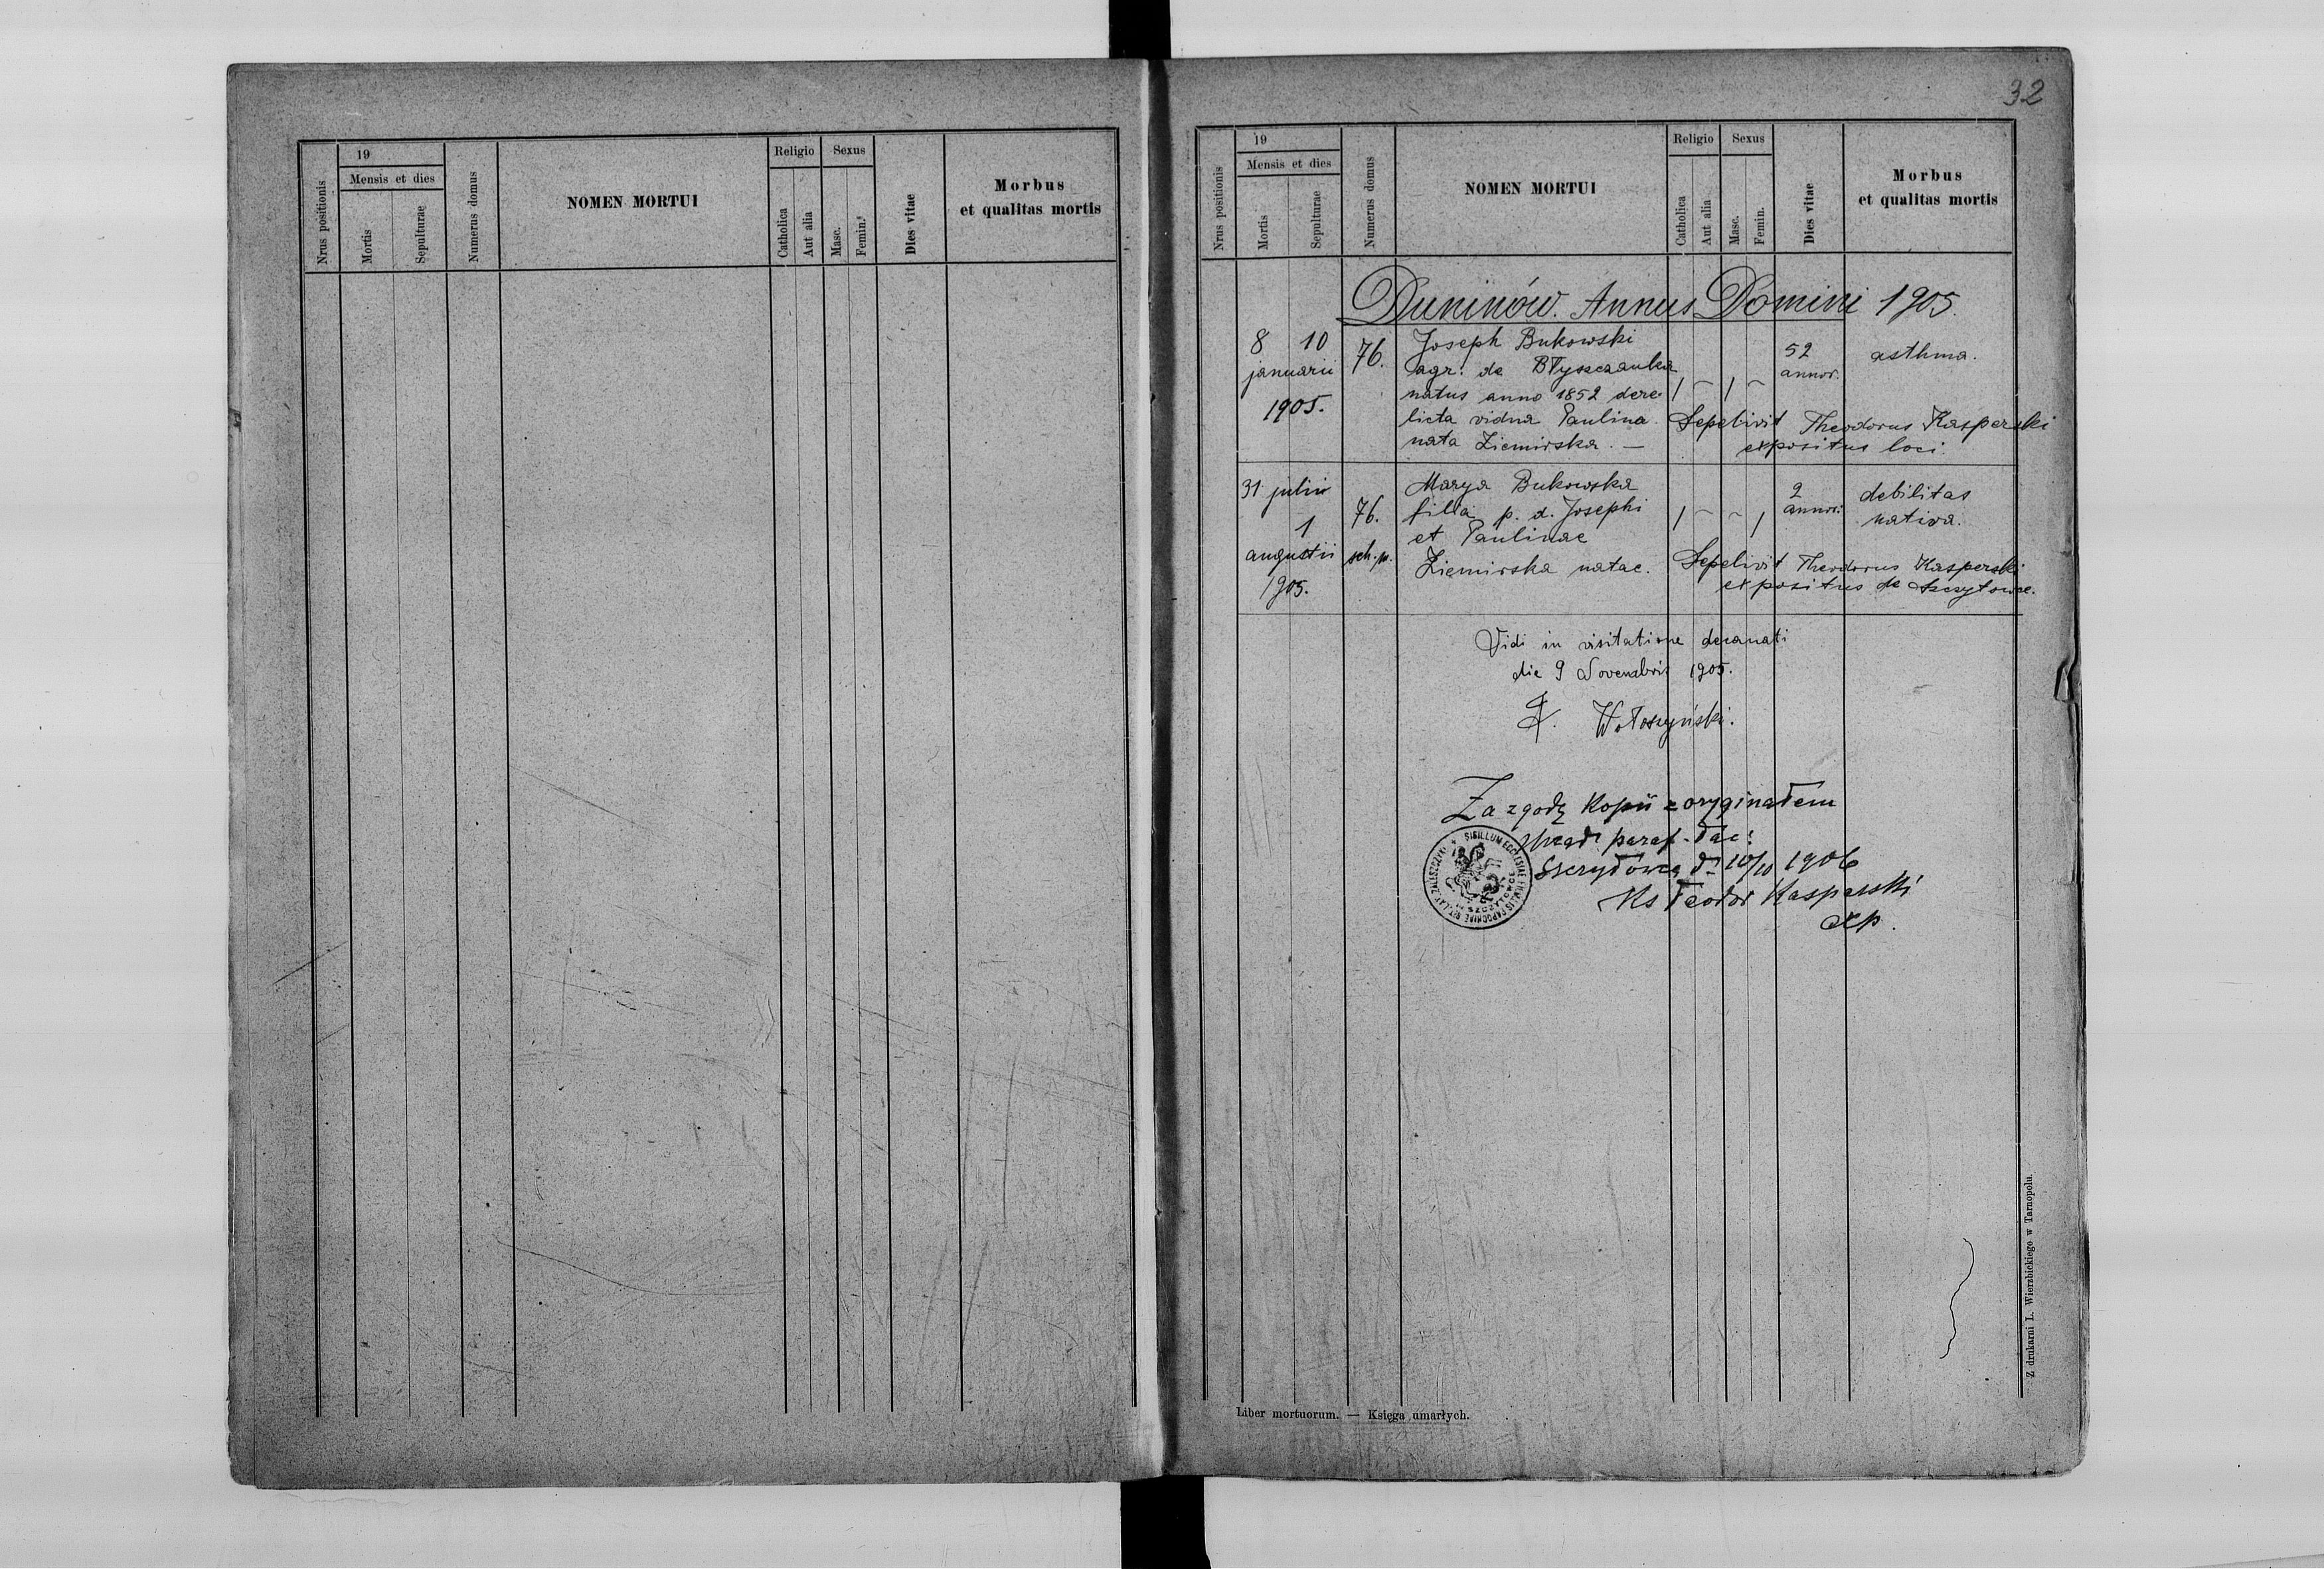 19
Mensis et dies
Nrus positionis
Mortis
Sepulturae
Numerus domus
NOMEN MORTUI
Religio
Catholica
Aut alia
Sexus
Masc.
Femin.
Dies vitae
Morbus
et qualitas mortis
32
19
Mensis et dies
Nrus positionis
Mortis
Sepulturae
Numerus domus
NOMEN MORTUI
Religio
Catholica
Aut alia
Sexus
Masc.
Femin.
Dies vitae
Morbus
et qualitas mortis
Duninów. Annus Domini 1905.
8 10
januarii
1905.
76.
Joseph Bukowski
agr: de
natus anno 1852 dere-
licta vidua Paulina
nata Ziemirska. —
52
annor.
asthma.
Sepelivit Theodorus Kasperski
expositus loci.
31 julii
1
augustii
1905.
76.
sch. p.
Marya Bukowska
filia p. d. Josephi
et Paulinae
Ziemirska natae.
2
annor.
debilitas
nativa.
Sepelivit Theodorus Kasperski
expositus de Szczytowce.
Vidi in visitatione decanati
die 9 Novembris 1905.
X. Wołoszyński.
Za zgodę Kopii z oryginałem
paraf. łac:
1906
Ks Teodor Kasperski
exp.
SIGILLUM ECCLESIAE FILIALIS PAROCHIAE RIT. LAT. ZALESZCZYKI
SZCZYTOWCE
Liber mortuorum. — Księga umarłych.
Z drukarni L. Wierzbickiego w Tarnopolu.